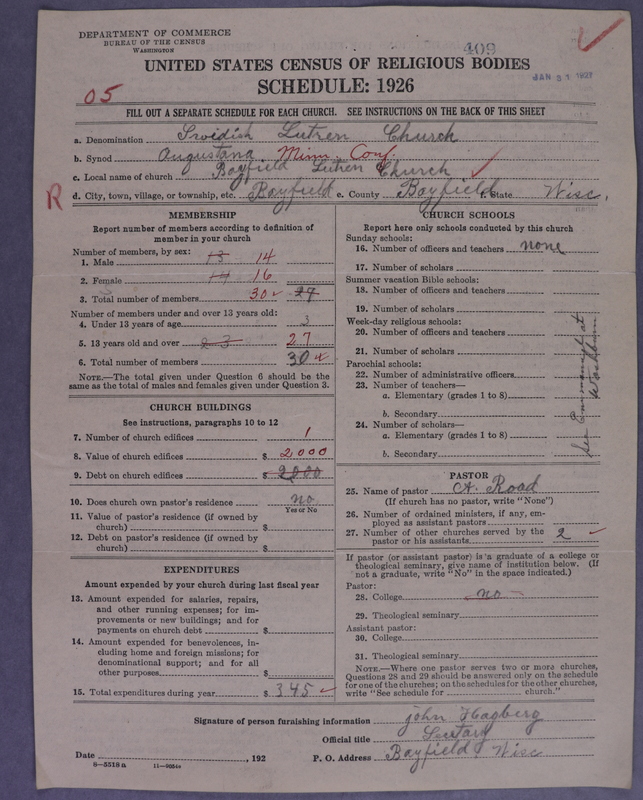 DEPARTMENT OF COMMERCE
BUREAU OF THE CENSUS
WASHINGTON
409
UNITED STATES CENSUS OF RELIGIOUS BODIES
JAN 31 1927
SCHEDULE: 1926
05
FILL OUT A SEPARATE SCHEDULE FOR EACH CHURCH. SEE INSTRUCTIONS ON THE BACK OF THIS SHEET
a. Denomination Swidish Lutren Church
b. Synod Augustana Minn. Conf.
c. Local name of church Bayfield Lutren Church
R
d. City, town, village, or township, etc. Bayfield e. County Bayfield f. State Wisc.
MEMBERSHIP
Report number of members according to definition of
member in your church
Number of members, by sex:
1. Male 13 14
2. Female 14 16
3. Total number of members 30 27
Number of members under and over 13 years old:
4. Under 13 years of age 3
5. 13 years old and over 23 27
6. Total number of members 30
NOTE.—The total given under Question 6 should be the
same as the total of males and females given under Question 3.
CHURCH BUILDINGS
See instructions, paragraphs 10 to 12
7. Number of church edifices 1
8. Value of church edifices $ 2000
9. Debt on church edifices $ 2000
10. Does church own pastor's residence no
Yes or No
11. Value of pastor's residence (if owned by
church) $
12. Debt on pastor's residence (if owned by
church) $
EXPENDITURES
Amount expended by your church during last fiscal year
13. Amount expended for salaries, repairs,
and other running expenses; for im-
provements or new buildings; and for
payments on church debt $
14. Amount expended for benevolences, in-
cluding home and foreign missions; for
denominational support; and for all
other purposes $
15. Total expenditures during year $ 345
CHURCH SCHOOLS
Report here only schools conducted by this church
Sunday schools:
16. Number of officers and teachers none
17. Number of scholars
Summer vacation Bible schools:
18. Number of officers and teachers
19. Number of scholars
Week-day religious schools:
20. Number of officers and teachers
21. Number of scholars
Parochial schools:
22. Number of administrative officers
23. Number of teachers—
a. Elementary (grades 1 to 8)
b. Secondary
24. Number of scholars—
a. Elementary (grades 1 to 8)
b. Secondary
See Emmanuel at
Washburn
PASTOR
25. Name of pastor A. Road
(If church has no pastor, write "None")
26. Number of ordained ministers, if any, em-
ployed as assistant pastors
27. Number of other churches served by the
pastor or his assistants 2
If pastor (or assistant pastor) is a graduate of a college or
theological seminary, give name of institution below. (If
not a graduate, write "No" in the space indicated.)
Pastor:
28. College no
29. Theological seminary
Assistant pastor:
30. College
31. Theological seminary
NOTE.—Where one pastor serves two or more churches,
Questions 28 and 29 should be answered only on the schedule
for one of the churches; on the schedules for the other churches,
write "See schedule for church."
Signature of person furnishing information john Hagberg
Official title Secutary
Date , 192 P. O. Address Bayfield Wisc
8—5518a